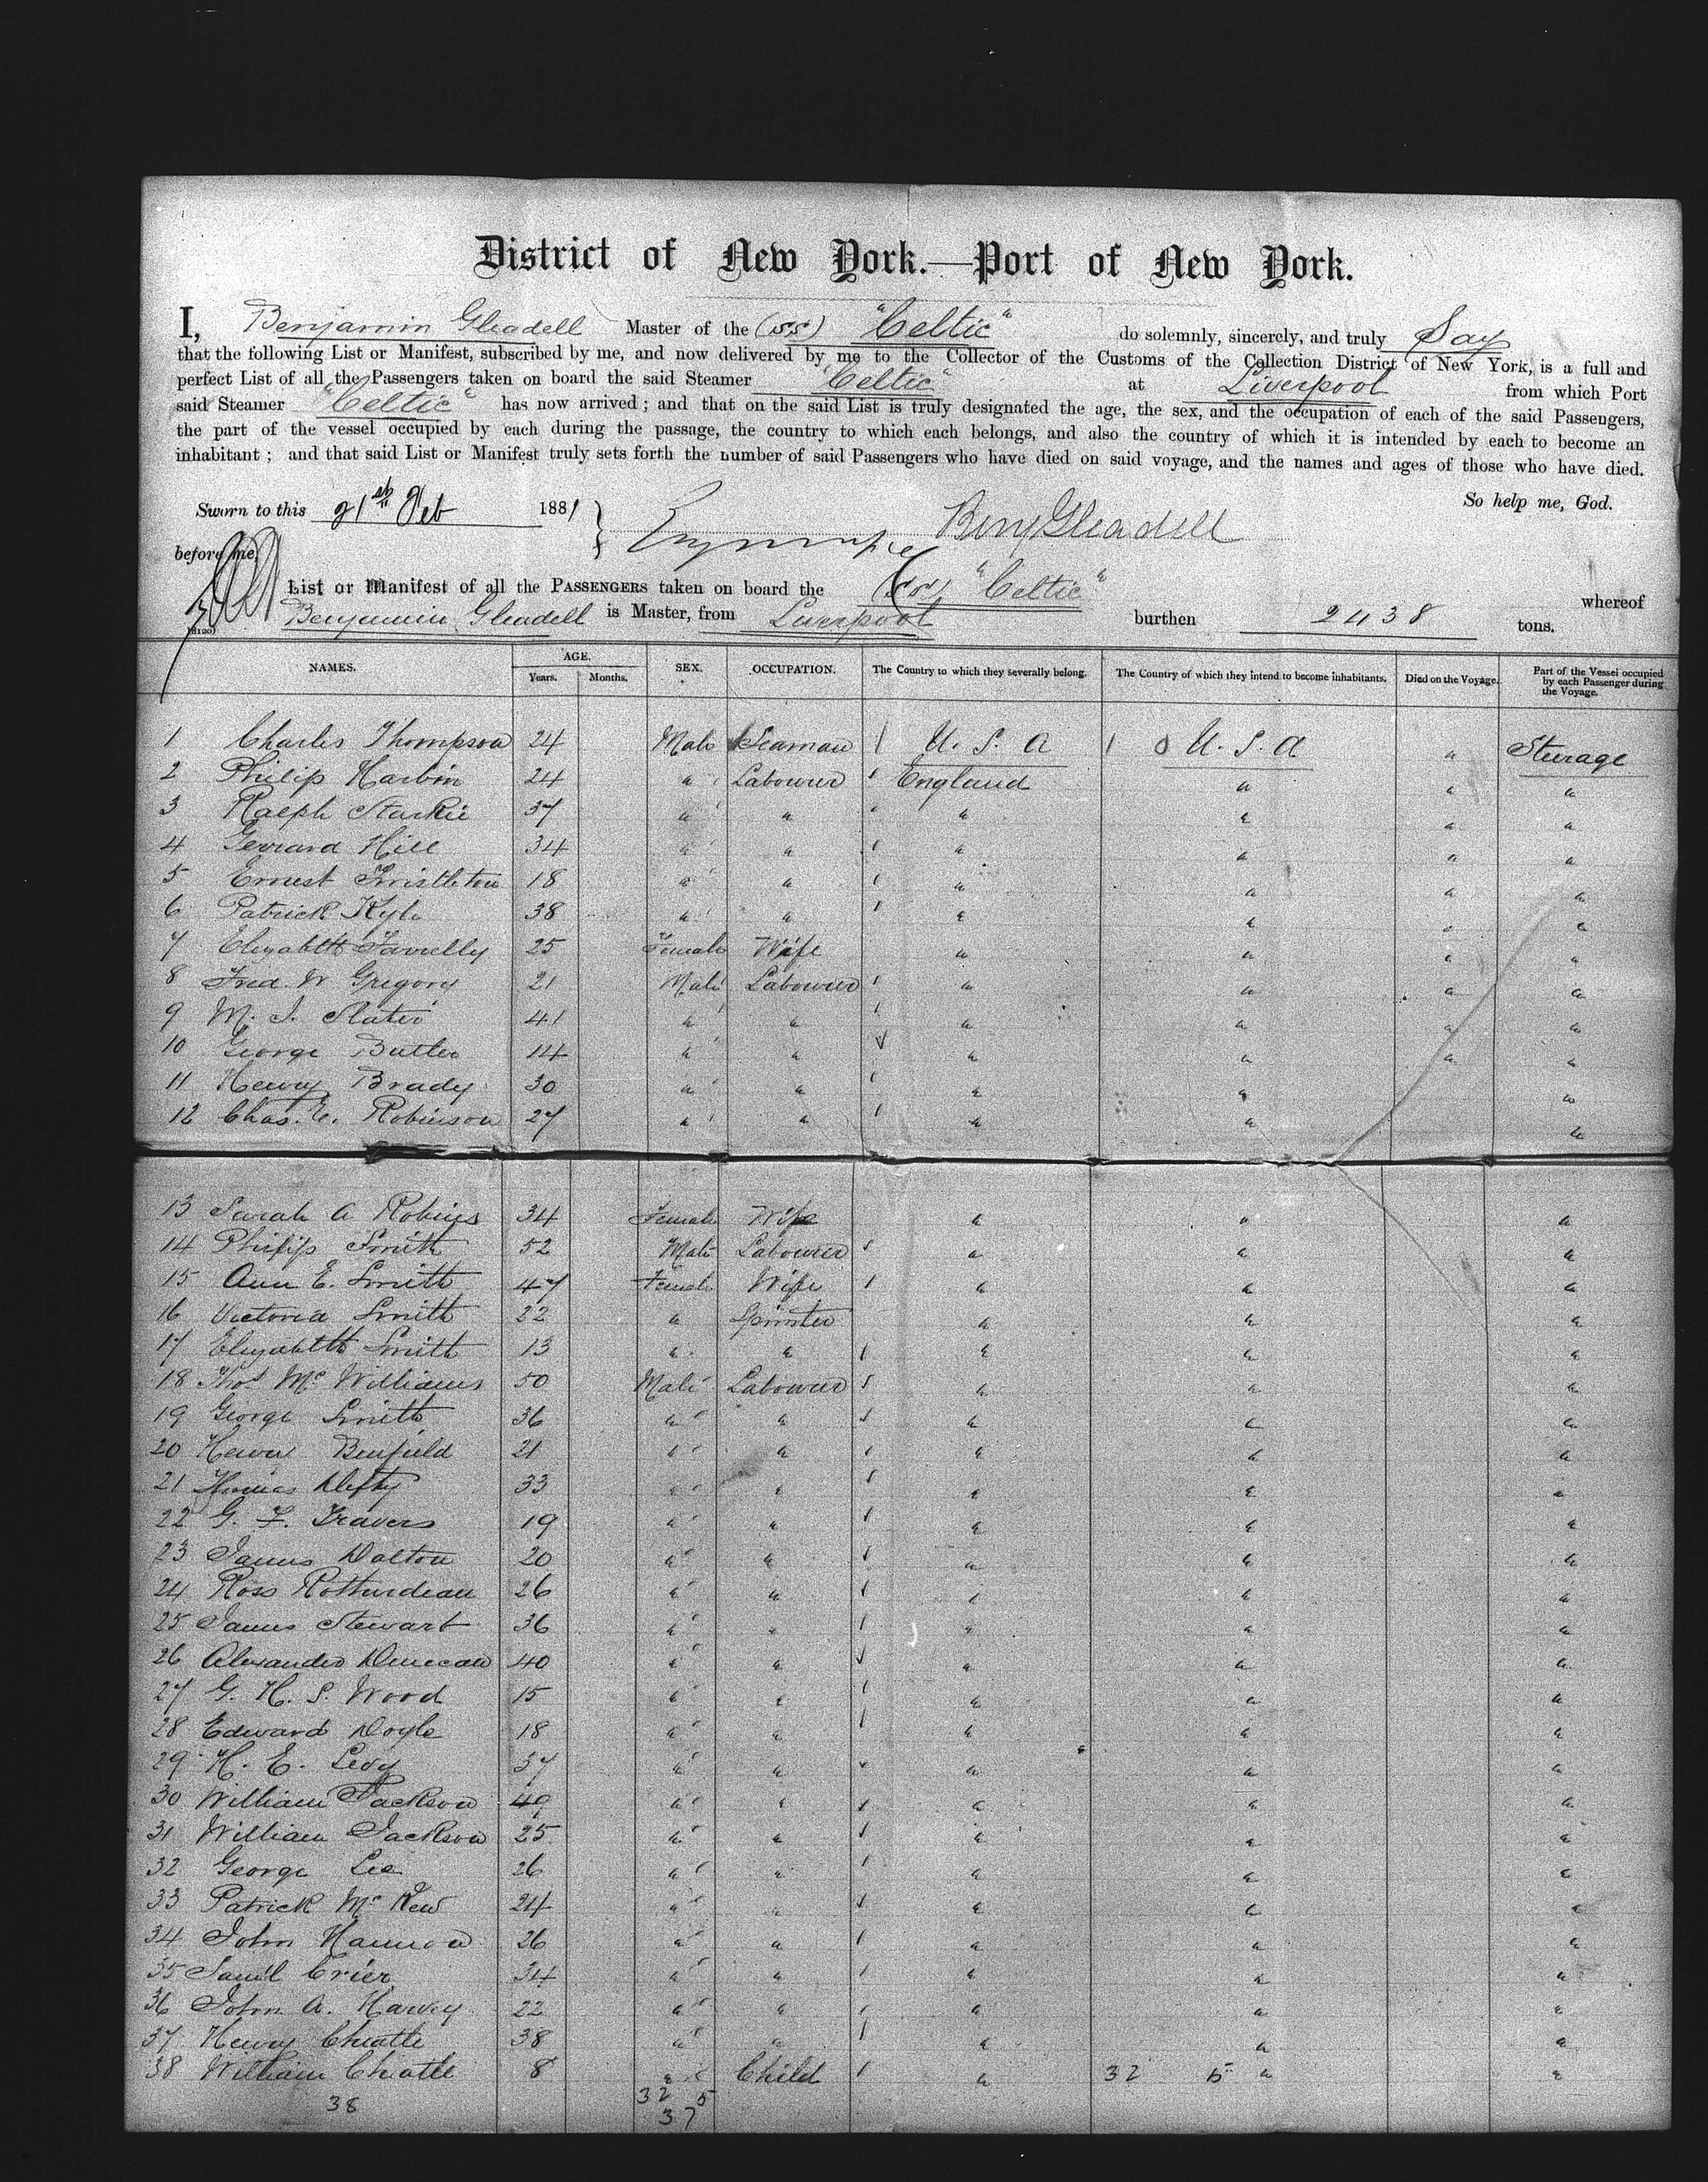 District of New York.—Port of New York.
I, Benjamin Gleadell Master of the (SS) "Celtic" do solemnly, sincerely, and truly Say
that the following List or Manifest, subscribed by me, and now delivered by me to the Collector of the Customs of the Collection District of New York, is a full and
perfect List of all the Passengers taken on board the said Steamer "Celtic" at Liverpool from which Port
said Steamer "Celtic" has now arrived; and that on the said List is truly designated the age, the sex, and the occupation of each of the said Passengers,
the part of the vessel occupied by each during the passage, the country to which each belongs, and also the country of which it is intended by each to become an
inhabitant; and that said List or Manifest truly sets forth the number of said Passengers who have died on said voyage, and the names and ages of those who have died.
So help me, God.
Sworn to this 21st Feb 1881 } Benj Gleadell
before me,
List or Manifest of all the PASSENGERS taken on board the (SS) "Celtic" whereof
Benjamin Gleadell is Master, from Liverpool burthen 2438 tons.
NAMES. AGE. Years. Months. SEX. OCCUPATION. The Country to which they severally belong. The Country of which they intend to become inhabitants. Died on the Voyage. Part of the Vessel occupied by each Passenger during the Voyage.
1 Charles Thompson 24 Male Seaman U. S. A U. S. A " Steerage
2 Philip Harbin 24 " Labourer England " " "
3 Ralph Starkie 37 " " " " " "
4 Gerrard Hill 34 " " " " " "
5 Ernest 18 " " " " " "
6 Patrick Kyle 38 " " " " " "
7 Elizabeth Farrelly 25 Female Wife " " " "
8 Fred. W Gregory 21 Male Labourer " " " "
9 M. J. Slater 41 " " " " " "
10 George Butler 14 " " " " " "
11 Henry Brady 30 " " " " "
12 Chas. E. Robinson 27 " " " " "
13 Sarah A Robins 34 Female Wife " " "
14 Philip Smith 52 Male Labourer " " "
15 Ann E. Smith 47 Female Wife " " "
16 Victoria Smith 22 " Spinster " " "
17 Elizabeth Smith 13 " " " " "
18 Thos Mc Williams 50 Male Labourer " " "
19 George Smith 36 " " " " "
20 Benfield 21 " " " " "
21 Thomas Defty 33 " " " " "
22 G. F. Travers 19 " " " " "
23 James Dalton 20 " " " " "
24 Ross 26 " " " " "
25 James Stewart 36 " " " " "
26 Alexander Duncan 40 " " " " "
27 G. H. S. Wood 15 " " " " "
28 Edward Doyle 18 " " " " "
29 H. E. Levy 37 " " " " "
30 William Jackson 49 " " " " "
31 William Jackson 25 " " " " "
32 George Lee 26 " " " " "
33 Patrick Mc Kew 24 " " " " "
34 John Hannon 26 " " " " "
35 Saml Crier 34 " " " " "
36 John A. Harvey 22 " " " " "
37 Henry Cheatle 38 " " " " "
38 William Cheatle 8 " Child " 32 5 " "
38 32 5
37